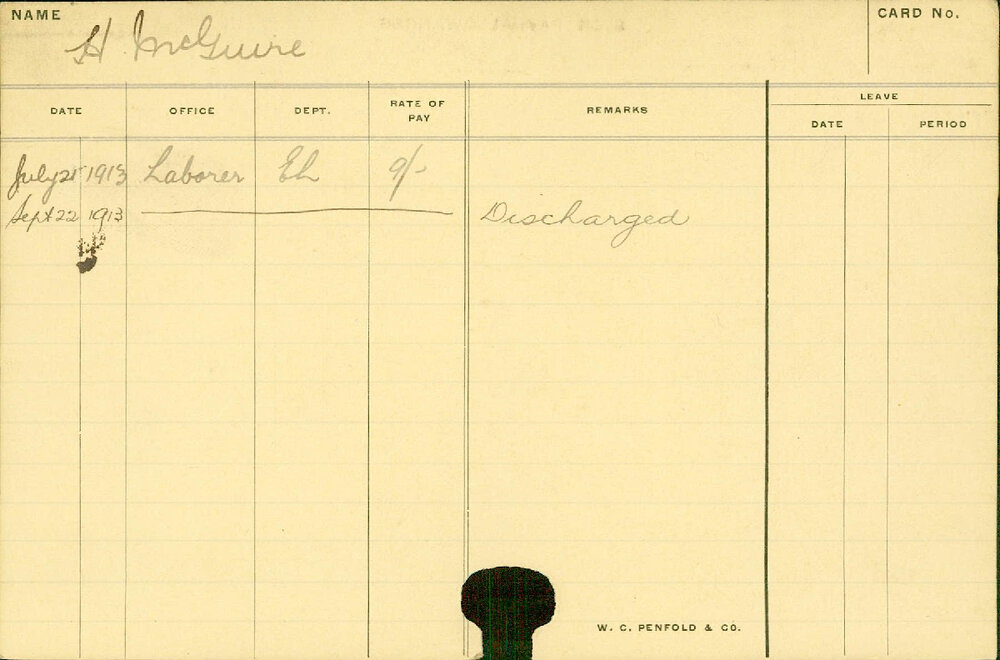 NAME H McGuire CARD No.
DATE OFFICE DEPT. RATE OF PAY REMARKS LEAVE
DATE PERIOD
July 21 1913 Laborer 9/-
Sept 22 1913 Discharged
W. C. PENFOLD & CO.